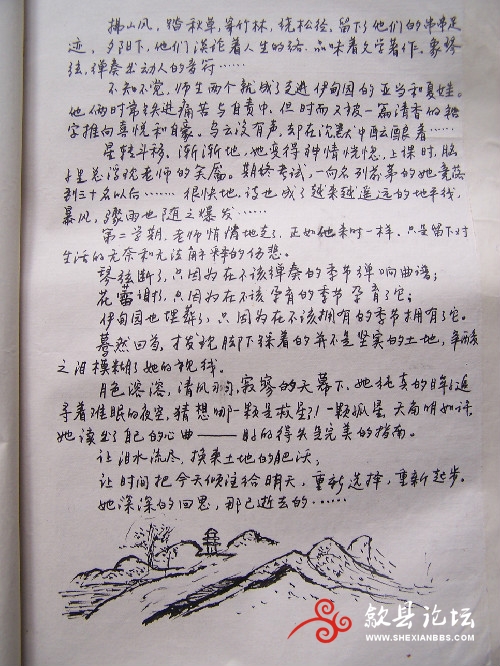 拂山风，踏秋草，穿竹林，绕松径。留下了他们的串串足
迹，夕阳下，他们谈论着人生的路，品味着文学著作。象琴
弦，弹奏出动人的音符……
不知不觉，师生两个就成了走进伊甸园的亚当和夏娃。
他俩时常失进痛苦与自责中，但时而又被一篇清香的
字推向喜悦和自豪。乌云没有声，却在沉默中酝酿着……
星转斗移，渐渐地，她变得神情恍惚，上课时，脑
里总浮沈老师的笑魇。期终考试，一向名列芬芳的她竟落
到三十名以后……很快地，诗也成了越来越遥远的地平线，
暴风，骤雨也随之爆发……
第二学期，老师悄悄地走了，正如他来时一样，只是留下对
生活的无奈和无法解释的伤悲。
琴弦断了，只因为在不该弹奏的季节弹响曲谱；
花蕾谢了，只因为在不该孕育的季节孕育了它；
伊甸园也埋葬了，只因为在不该拥有的季节拥有了它。
蓦然回首，才发现脚下踩着的并不是坚实的土地，
之泪模糊了她的视线。
月色溶溶，清风习习，寂寥的天幕下，她纯真的眸子追
寻着难眠的夜空，猜想哪一颗是救星？！一颗孤星，天南明如诉，
她读出了自己的心曲——时的得失是完美的指南。
让泪水流尽，换来土地的肥沃，
让时间把今天倾注给明天，重新选择，重新起步。
她深深的回思，那已逝去的……
歙县论坛
WWW.SHEXIANBBS.COM